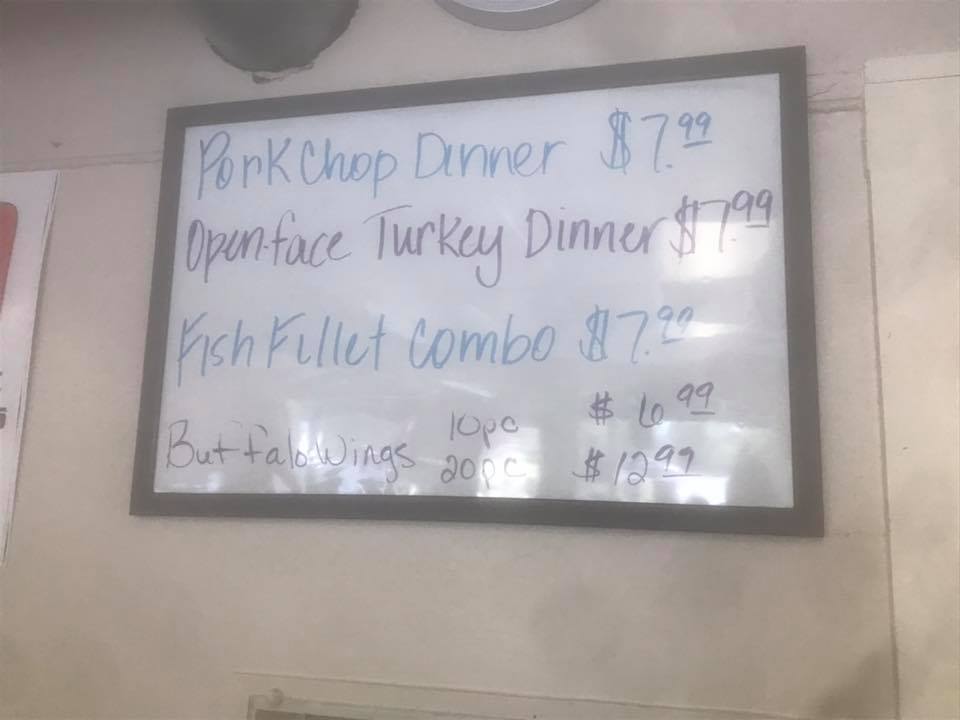 Pork Chop Dinner $7.99
Open-face Turkey Dinner $7.99
Fish Fillet Combo $7.99
Buffalo Wings 10pc $6.99
20pc $12.99